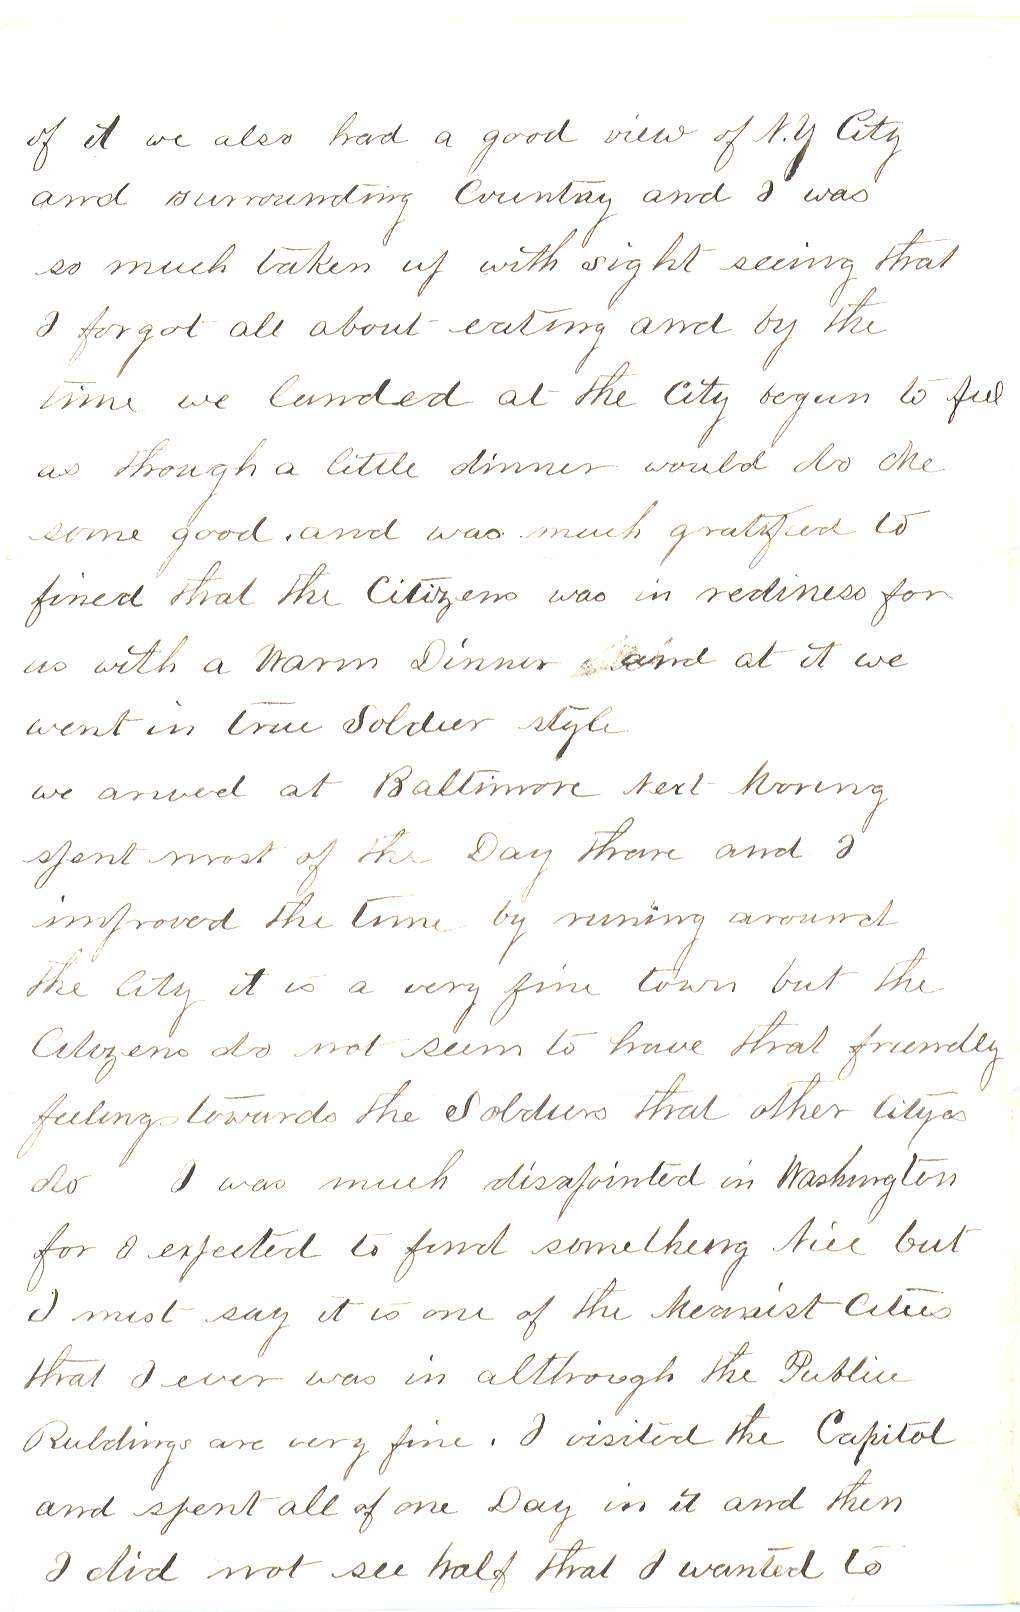 of it we also had a good view of N.Y City
and surrounding Country and I was
so much taken up with sight seeing that
I forgot all about eating and by the
time we landed at the City begun to feel
as though a little dinner would do Me
some good. and was much gratified to
fined that the Citizens was in rediness for
us with a Warm Dinner and at it we
went in true Soldier style
we arived at Baltimore Next Moring
spent most of the Day thare and I
improved the time by runing around
the City it is a very fine town but the
Citizens do not seem to have that friendly
feelings towards the Soldiers that other Cityes
do I was much disapointed in Washington
for I expected to find something Nice but
I must say it is one of the Meanist Cities
that I ever was in although the Public
Buldings are very fine. I visited the Capitol
and spent all of one Day in it and then
I did not see half that I wanted to